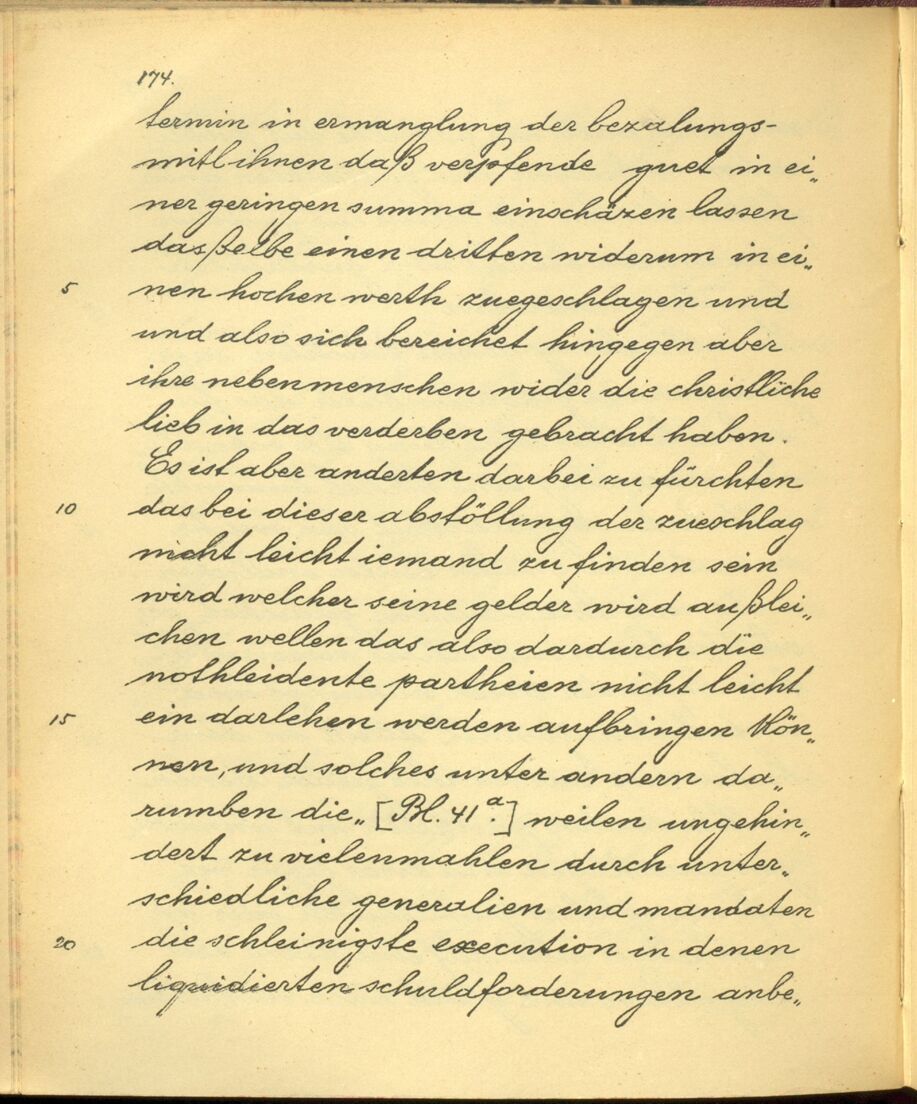 174.
termin in ermanglung der bezalungs-
mitl ihnen daß verpfende guet in ei„
ner geringen summa einschäzen lassen
dasßelbe einen dritten widerum in ei„
5 nen hochen werth zuegeschlagen und
und also sich bereichet hingegen aber
ihre nebenmenschen wider die christliche
lieb in das verderben gebracht haben.
Es ist aber anderten darbei zu fürchten
10 das bei dieser abstöllung der zueschlag
nicht leicht iemand zu finden sein
wird welcher seine gelder wird außlei„
chen wellen das also dardurch die
nothleidente partheien nicht leicht
15 ein darlehen werden aufbringen kön„
nen, und solches unter andern da„
rumben die„ [Bl. 41a.] weilen ungehin„
dert zu vielenmahlen durch unter„
schiedliche generalien und mandaten
20 die schleinigste execution in denen
liquidierten schuldforderungen anbe„